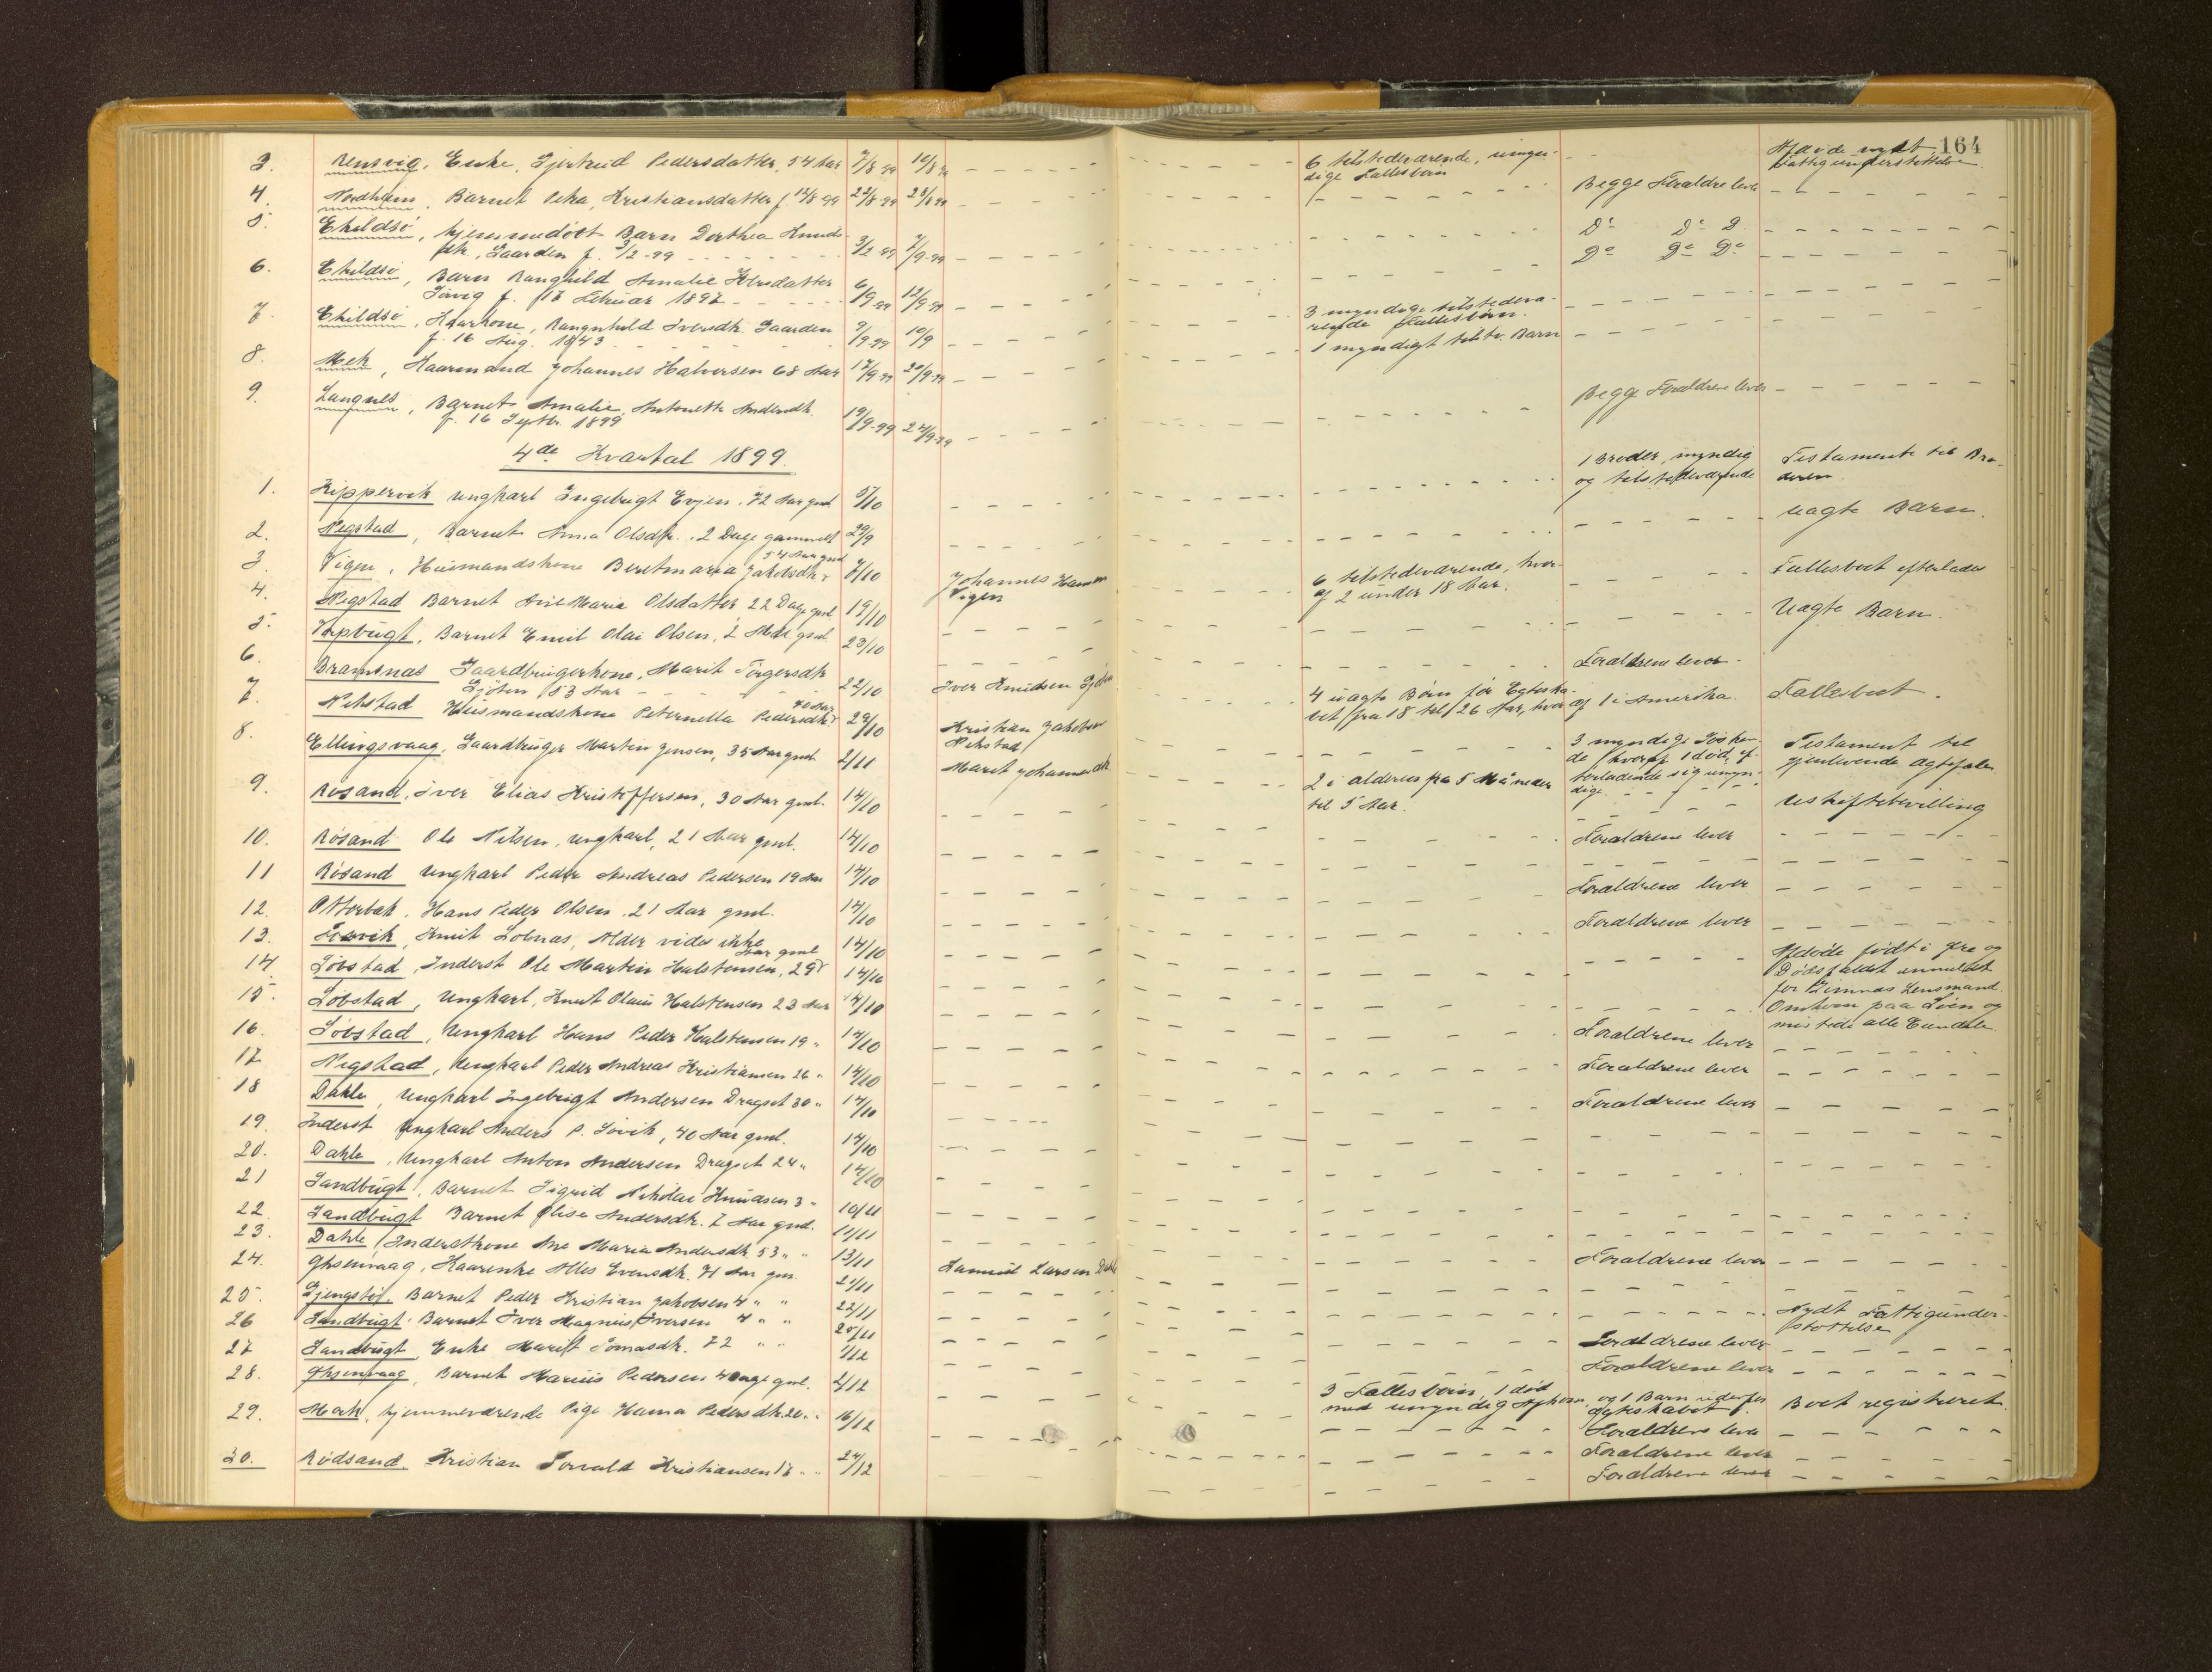 164
3. Rensvig, Enke, Gjertrud Pedersdatter, 54 Aar 7/8 99 10/8 99
4. Nordheim, Barnet Petra, Kristiansdatter f. 12/8 99 22/8-99 23/8 99
5. Ekildsø, hjemmedøbt Barn Dorthea Knuds-
dtr, Gaarden f. 3/2-99 3/2-99 7/9-99
6. Ekildsø, Barn Ranghild Amalie Iversdatter
f. 17 Februar 1897 6/9-99 12/9-99
7. Ekildsø, Kaarkone, Rangnhild Iversdtr. Gaarden
f. 16 Aug. 1843 9/9-99 10/9
8. Mek, Kaarmand Johannes Halvorsen 68 Aar 17/9-99 20/9-99
9. Langnes, Barnet Amalie, Antonette Andersdtr.
f. 16 Septbr. 1899 19/9-99 24/9-99
4de Kvartal 1899.
1. Kippervik Ungkarl Ingebrigt Evjen. 72 Aar gml. 5/10
2. Negstad, Barnet Anna Olsdtr. 2 Dage gammelt 29/9
54 Aar gml
3. Vigen, Husmandskone Beretmaria Jakobsdtr 7/10 Johannes Hansen
Vigen
4. Negstad Barnet Ane Maria Olsdatter 22 Dage gml 19/10
5. Torpbugt, Barnet Emil Olai Olsen, 2 Mdr. gml. 23/10
6. Bremsnæs Gaardbrugerkone, Marit Torgersdtr
53 Aar 22/10 Iver Knudsen
40 Aar
7. Nekstad Husmandskone Peternella Pedersdtr 29/10 Kristian Jakobsen
Nekstad
8. Ellingsvaag, Gaardbruger Martin Jensen, 35 Aar gml 2/11 Marit Johannesdtr
9. Røsand, Iver Elias Kristoffersen, 30 Aar gml. 14/10
10. Røsand Ole Nilsen, Ungkarl, 21 Aar gml. 14/10
11 Røsand Ungkarl Peder Andreas Pedersen 19 Aar 14/10
12. Otterbæk, Hans Peder Olsen. 21 Aar gml. 14/10
13. Knut Lobnæs, Alder vides ikke 14/10
Aar gml
14 Løvstad, Inderst Ole Martin Halstensen, 29 14/10
15. Løbstad, Ungkarl, Knut Olaus Halstensen 23 Aar 14/10
16. Løbstad, Ungkarl Hans Peder Halstensen 19 " 14/10
17 Negstad, Ungkarl Peder Andreas Kristiansen 26 " 14/10
18 Dahle, Ungkarl Ingebrigt Andersen Dragset 30 " 14/10
19. Inderst Ungkarl Anders P. Sovik, 40 Aar gml. 14/10
20. Dahle, Ungkarl Anton Andersen Dragset 24 " 14/10
21 Sandbugt, Barnet Sigrid Nikolai Knudsen 3 " 10/11
22. Sandbugt Barnet Elise Andersdtr. 7 Aar gml. 11/11
23. Dahle, Inderstkone Ane Maria Andersdtr 53 " " 13/11 Samuel Larsen Dahle
24. Øksenvaag, Kaarenke Alles Evensdtr. 71 Aar gm. 21/11
25. Gjengstø, Barnet Peder Kristian Jakobsen 4 " " 22/11
26 Sandbugt Barnet Iver Magnus Iversen 4 " " 25/11
27 Sandbugt, Enke Marit Tomasdtr. 72 " " 1/12
28. Øksenvaag, Barnet Marius Pedersen 4 Dage gml. 2/12
29. Mæk, hjemmeværende Pige Hanna Pedersdtr 20 " " 16/12
30. Rødsand. Kristian Torvald Kristiansen 17 " " 24/12
6 tilstedeværende, umyn-
dige Fællesbørn
Afdøde nydt
Fattigunderstøttelse
Begge Forældre lever
Do Do D.
Do Do Do
3 myndige tilstedevæ-
rende Fællesbørn.
1 myndigt tilstv. Barn
Begge Forældrene lever
1 Broder, myndig
og tilstedeværende
Testamente til Bro-
deren
Uægte Barn.
6 tilstedeværende, hvor-
af 2 under 18 Aar.
Fællesboet efterlades
Uægte Barn.
Forældrene lever
4 uægte Børn før Egteska-
bet fra 18 til 26 Aar, hvor af 1 i Amerika.
Fællesboet.
3 myndige Søsken-
de hvoraf 1 død, ef-
terladende sig umyn-
dige
Testament til
gjenlevende Ægtefælle
2 i alderen fra 5 Måneder
til 5 Aar.
Uskiftebevilling
Forældrene lever
Forældrene lever
Forældrene lever
Afdøde født i Øre og
Dødsfaldet anmeldt
for Gimnæs Lensmand.
Omkom paa Søen og
mistede alle Eiendele
Forældrene lever
Forældrene lever
Forældrene lever
Forældrene lever
Nydt Fattigunder-
støttelse
Forældrene lever
Forældrene lever
3 Fællesbørn, 1 død
med umyndig Afkom, og 1 Barn udenfor
Ægteskabet
Boet registreret.
Forældrene lever
Forældrene lever
Forældrene lever